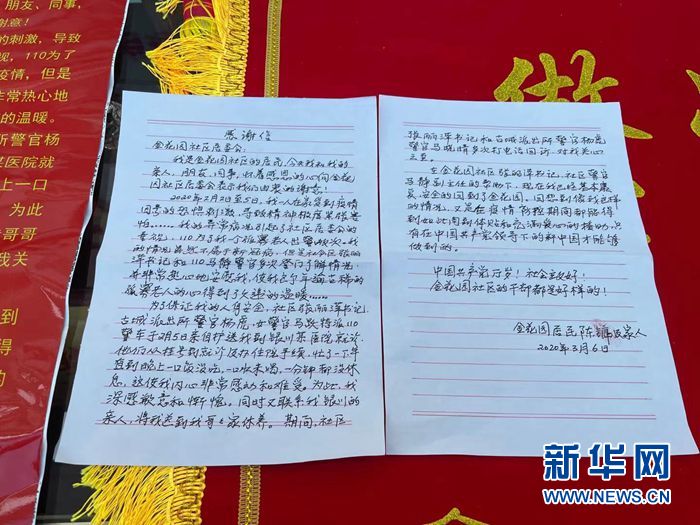 朋友、同事,
谢意!
的刺激,导致
110为了
疫情,但是
非常热心地
的温暖。
警官杨
医院就
上一口
为此
哥哥
我关
到
得
做
感谢信
金花园社区居委会:
我是金花园社区的居民,今天我和我的
亲人、朋友、同事,怀着感恩的心向金花
园社区居委会表示我们由衷的谢意!
2020年2月2日至5日,我一人在家受到疫情
因素的恐惧刺激,导致精神极度紧张害
怕……我的异常情况引起了社区居委会的
重视,110为了我一个孤寡老人出警数次。我
书记和110马静警官多次登门了解情况,
并非常热心地安慰我,使我这个年逾古稀的
孤寡老人的心得到了久违的温暖……
为了保证我的人身安全,社区张丽萍书记、
古城派出所警官杨虎、女警官马跃特派110
警车于2月5日亲自护送我到银川某医院就诊,
他们从挂号到就诊及办住院手续,忙了一下午
直到晚上一口饭没吃,一口水未喝,一分钟都没休
息,这使我内心非常感动和难受。为此,我
深感歉意和惭愧。同时又联系我银川的
亲人,将我送到我哥哥家休养。期间,社区
张丽萍书记和古城派出所警官杨虎、
警官马晓晴多次打电话回访,对我关心
之至。
在金花园社区张丽萍书记、社区警官
马静副主任的帮助下,现在我已经基本康
复,安全的回到了金花园。回想到像我这样
的情况,又是在疫情防控期间都能得
到如此周到体贴和充满爱心的援助,只
有在中国共产党领导下的新中国才能够
做到的。
中国共产党万岁!社会主义好!
金花园社区的干部都是好样的!
金花园居民陈 及家人
2020年3月6日
新华网
WWW.NEWS.CN
金